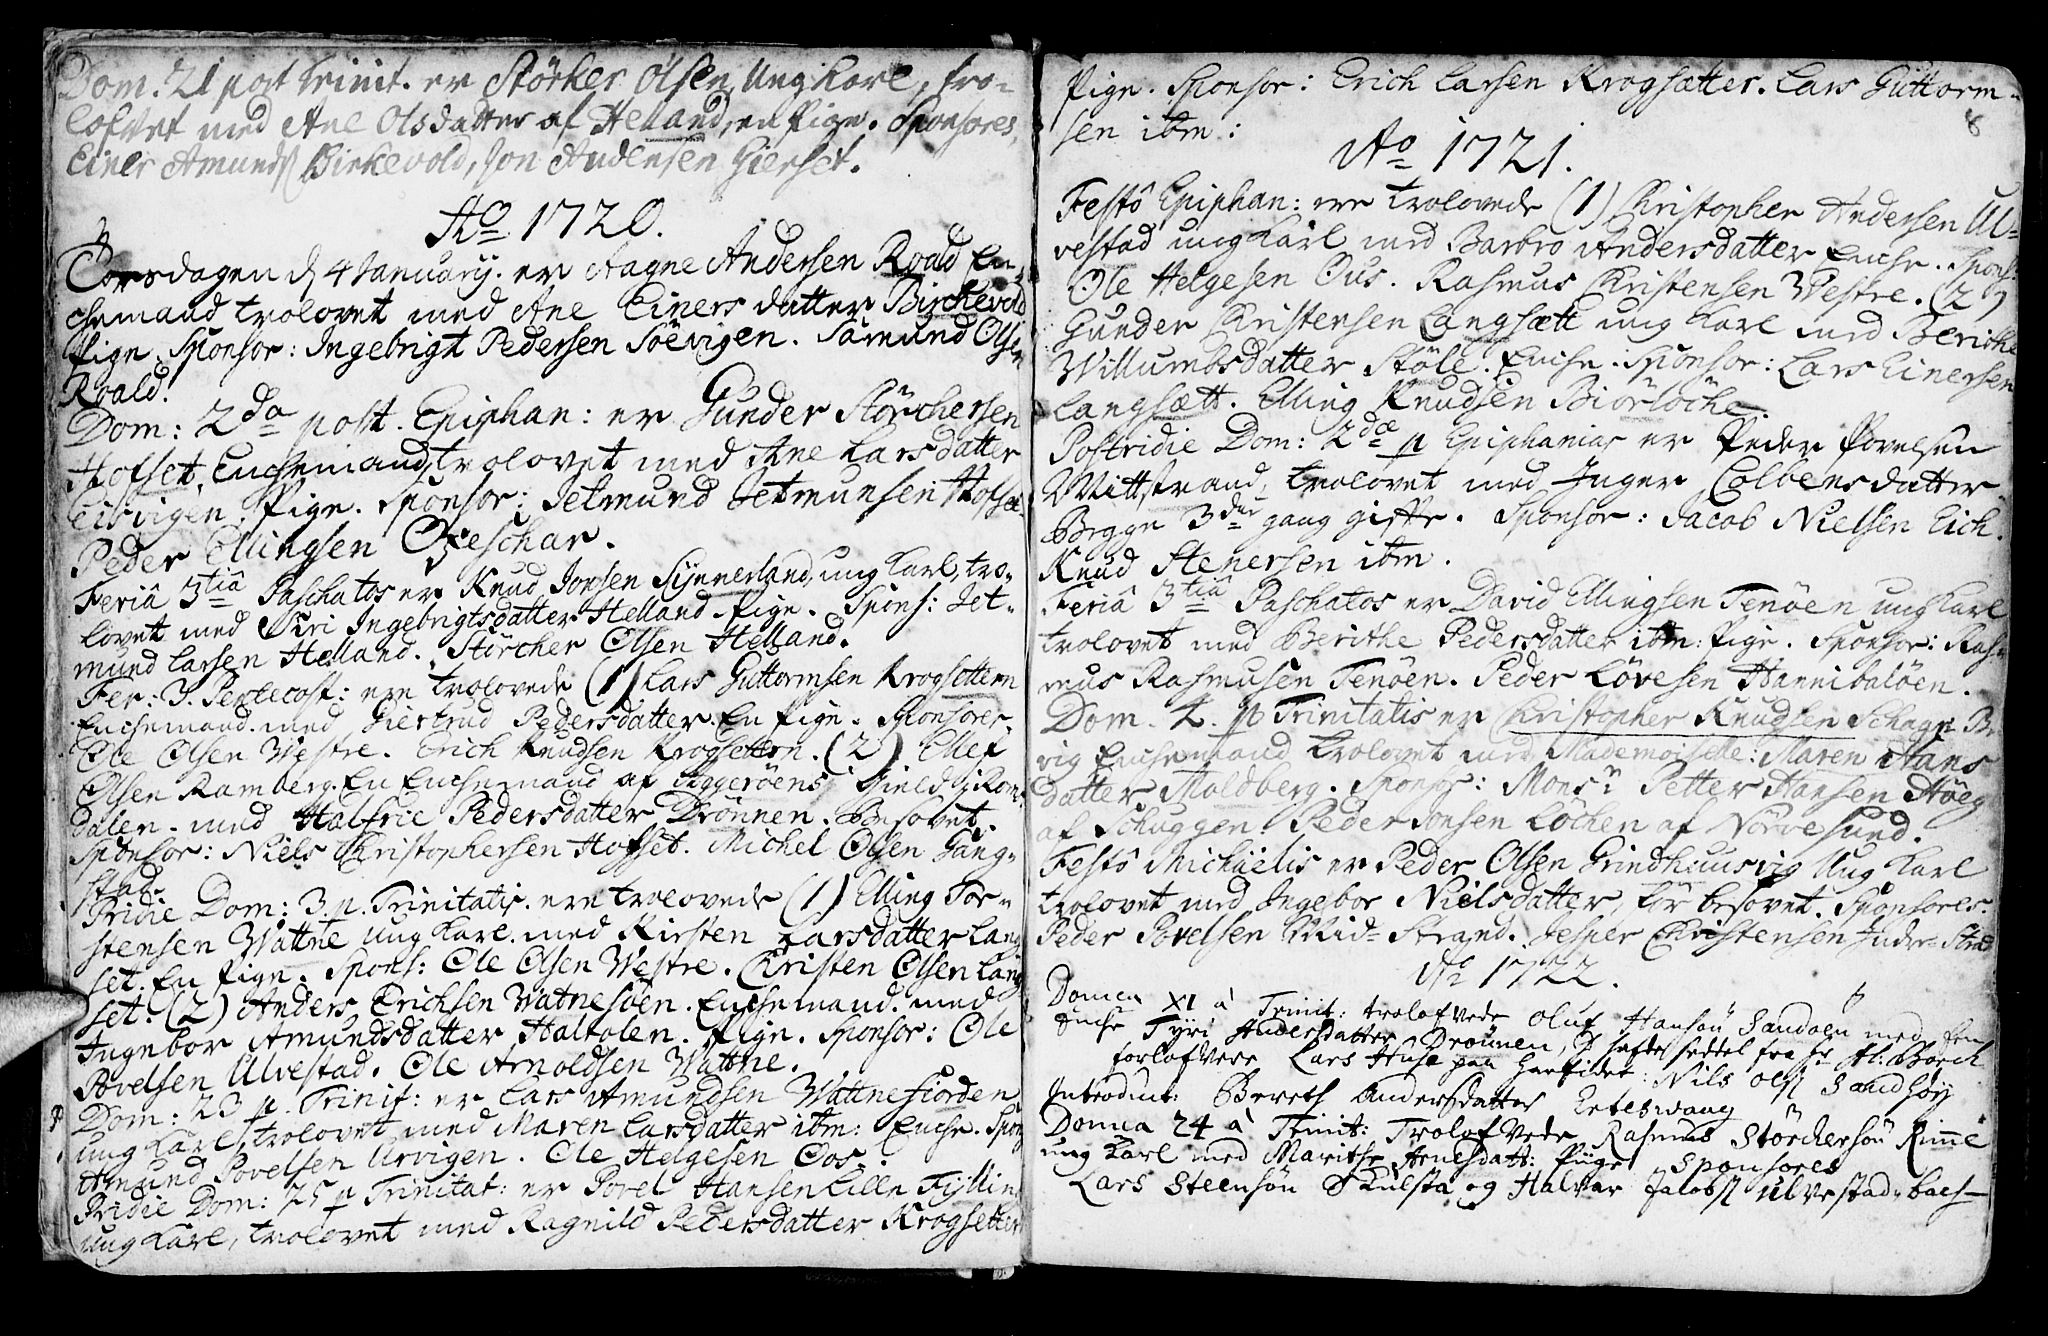 Dom. 21 post Trinit. er Störker Olsen, Ung Karl, tro-
lofvet med Ane Olsdatter af Helland, en Pige. Sponsores,
Einer Amunds Birkevold, Jon Andersen Gierset.
Ao 1720.
Torsdagen d 4 January. er Aagne Andersen Roald En-
chemand trolovet med Ane Einersdatter Birchevold
Pige. Sponsor: Ingebrigt Pedersen Söevigen. Samund Olsen
Roald.
Dom: 2da post. Epiphan: er Gunder Störchersen
Hofset, Enchemand, trolovet med Ane Larsdatter
Eisvigen, Pige. Sponsor: Jetmund Jetmunsen Hofset
Peder Ellingsen Oxeschar.
Feriâ 3tiâ Paschatos er Knud Jonsen Synnerland, ung Karl, tro-
lovet med Siri Ingebrigtsdatter Helland Pige. Spons: Jet-
mund Larsen Helland. Störcher Olsen Helland.
Fer: 3. Pentecost: ere trolovede (1) Lars Guttormsen Krogsettern
Enchemand med Giertrud Pedersdatter. En Pige. Sponsores.
Ole Olsen Westre. Erich Knudsen Krogsettern. (2) Ellef
Olsen Ramberg. En Enchemand af Aggeröens Gield i Rom-
dalen. med Halfrie Pedersdatter Drönnen. Besovet.
Sponsor: Niels Christophersen Hofset. Michel Olsen Gang-
stad.
Pridie Dom: 3 p. Trinitatis. ere trolovede (1) Elling Tor-
stensen Wattne ung Karl. med Kirsten Larsdatter Lang
set. En Pige. Spons: Ole Olsen Westre. Christen Olsen Lang
set. (2) Anders Erichsen Watnesöen. Enchemand. med
Ingebor Amundsdatter Haltolen. Pige. Sponsor: Ole
Povelsen Ulvestad. Ole Arnoldsen Wattne.
Dom: 23 p. Trinit: er Lars Amundsen Wattnefiorden
ung Karl, trolovet med Maren Larsdatter ibm: Enche. Spons
Amund Povelsen Urvigen. Ole Helgesen Oos.
Pridie Dom: 25 p Trinitat: er Povel Hansen Lille Fylling
ung Karl, trolovet med Ragnild Pedersdatter Krogsetter
Pige. Sponsor: Erich Larsen Krogsætter. Lars Guttorm-
sen ibm:
8
Ao 1721.
Festô Epiphan: ere trolovede (1) Christopher Andersen Ul-
vestad ung Karl med Barbro Andersdatter Enche. Spons:
Ole Helgesen Ous. Rasmus Christensen Westre. (2)
Gunder Christensen Langsætt ung Karl med Berithe
Willumbsdatter Stöle. Enche. Sponsor: Lars Einersen
Langsætt. Elling Knudsen Biörlöche.
Postridie Dom: 2dæ p Epiphanias er Peder Povelsen
Mittstrand, trolovet med Inger Colbensdatter
Begge 3die gang gifte. Sponsor: Jacob Nielsen Eich.
Knud Stenersen ibm.
Feriâ 3tiâ Paschatos er David Ellingsen Tenöen ung Karl
trolovet med Berithe Pedersdatter ibm: Pige. Sponsor: Ras-
mus Rasmusen Tenöen. Peder Lövesen Hannibalöen.
Dom. 4. p Trinitatis er Christopher Knudsen Schage
vig Enchemand trolovet med Mademoiselle: Maren Hans
datter Moldberg. Sponsor: Monsr Petter Hansen Höeg
af Schuggen. Peder Jonsen Löchen af Nörvesund.
Festô Michaëlis er Peder Olsen Grindhuusvig Ung Karl
trolovet med Ingebor Nielsdatter, för besovet. Sponsores.
Peder Povelsen Mid-Strand. Jesper Christensen Indre-Strd
Ao 1722.
Domca XI à Trinit: trolofvede Oluf Hansøn Sandøen med den
Enche Tyri Andersdatter Drönnen,
forlofvere Lars Huse paa Harfidet: Nils Ols Sandhøy
Introduct: Bereth Andersdatter Erteswaag
Domca 24 à Trinit: Trolofvede Rasmus Störchersøn Rinne
ung Karl med Marithe Arnesdatt: Piige Sponsores
Lars Steensøn Skulsta og Halvar Jacobs Ulvestad-